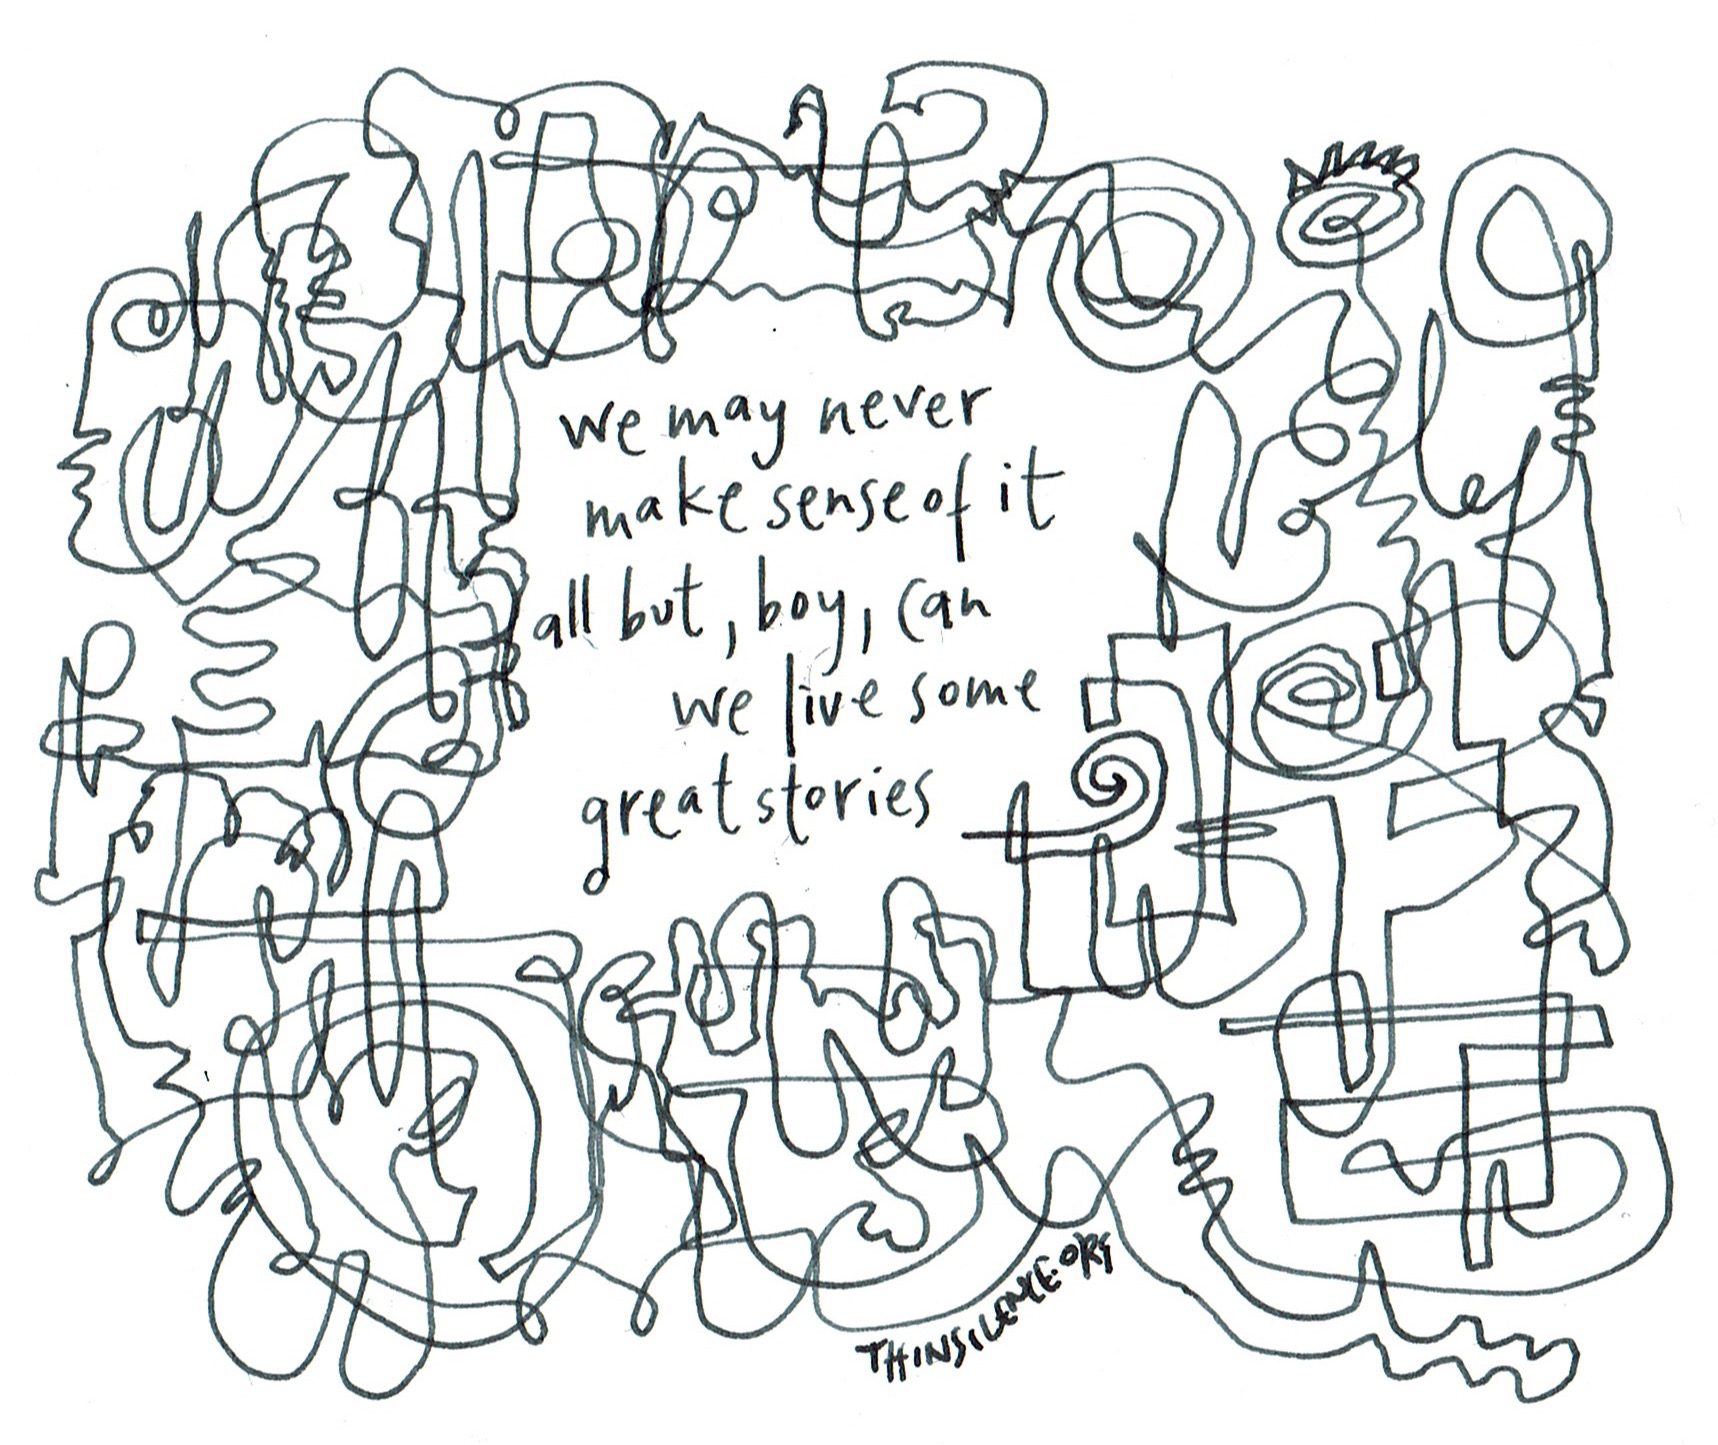 we may never
make sense of it
all but, boy, can
we live some
great stories
THINSILENCE.ORG